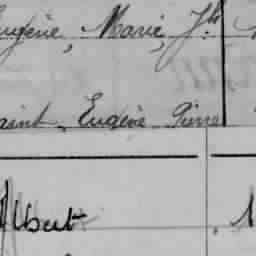 Eugène, Marie, Jh
Saint, Eugène Pierre
Albert